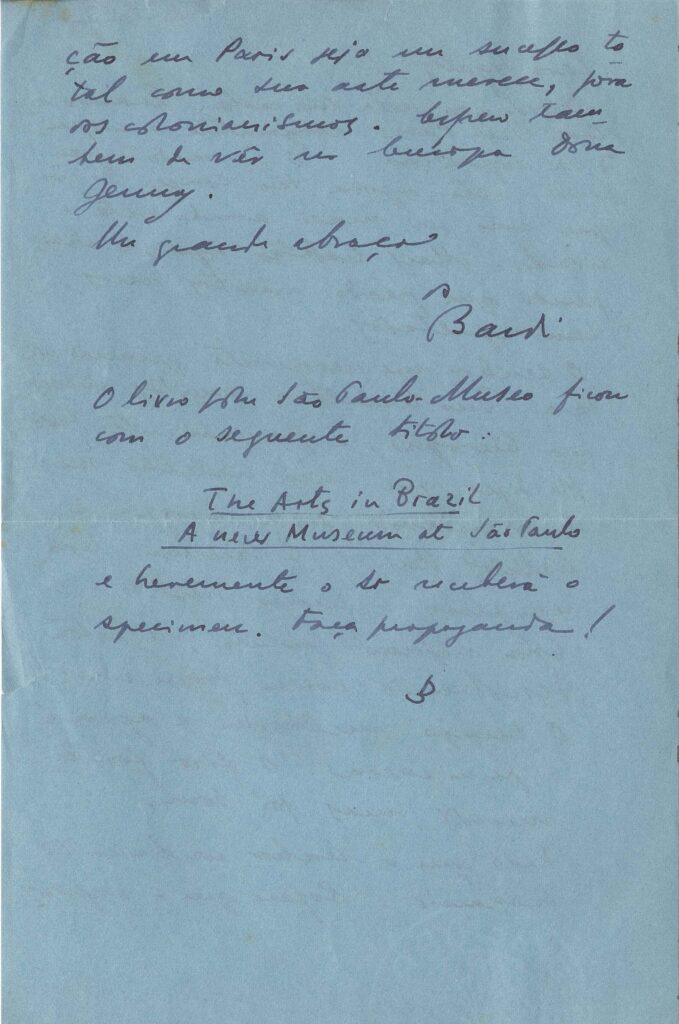 ção em Paris seja um sucesso to
tal como sua arte merece, fora
os colonianismos. Espero tam
bem de vêr na Europa Dona
Jenny.
Um grande abraço
P Bardi
O livro sôbre São Paulo-Museo ficou
com o seguente titolo:
The Arts in Brazil
A new Museum at São Paulo
e brevemente o sr receberá o
specimen. Faça propaganda!
B